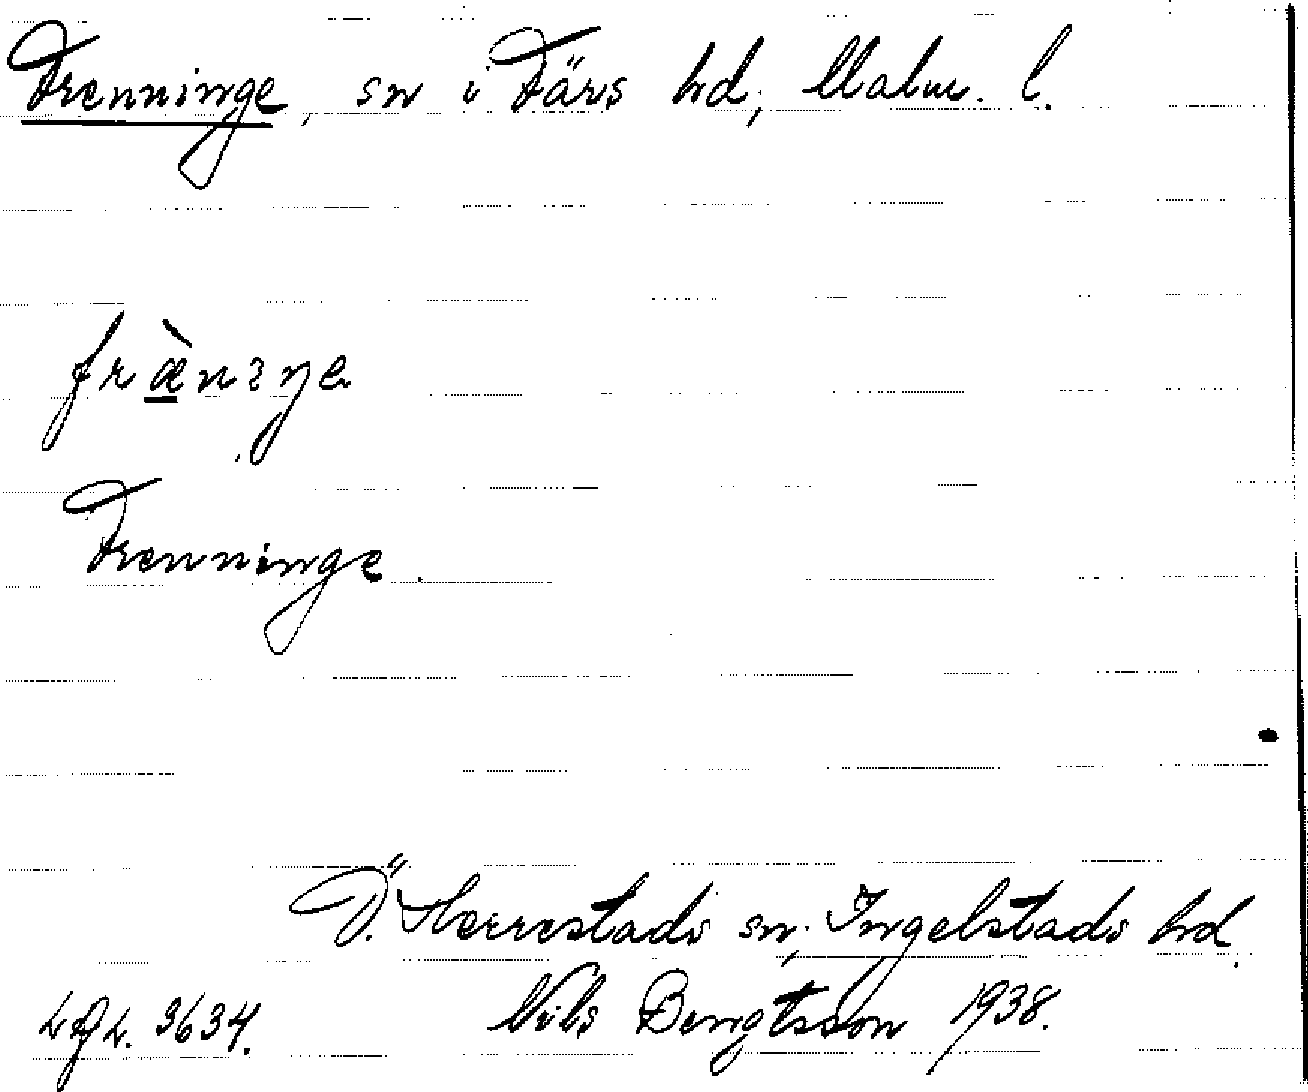 Frenninge, sn i Färs hd, Malm. l.
fræ̀nıŋe
Frenninge.
Ö. Herrestads sn, Ingelstads hd.
Nils Bengtsson 1938.
3634.